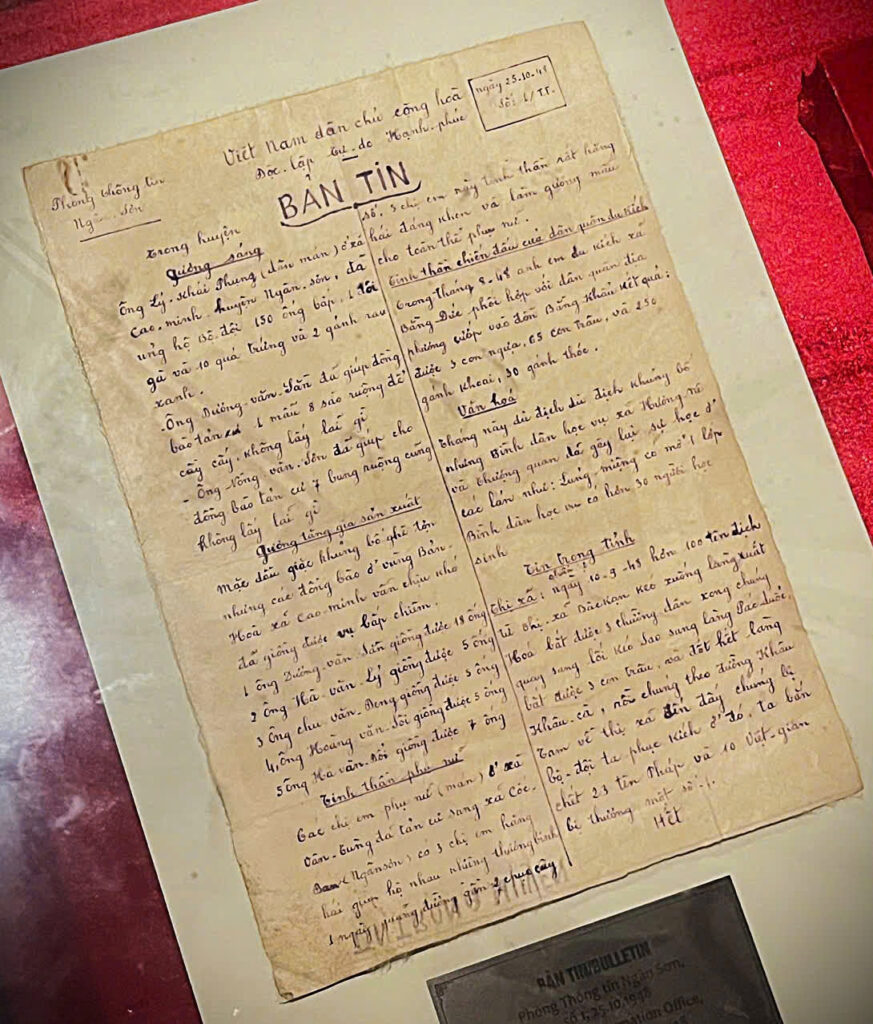 Việt Nam dân chủ cộng hoà
Độc-lập Tự-do Hạnh-phúc
ngày 25-10-48
Số: 1/T.T.
Phòng thông tin
Ngân-Sơn
BẢN TIN
Trong huyện
Gương sáng
Ông Lý-Khái Phung (dân mán) ở xã
Cao-minh huyện Ngân-sơn, đã
ủng hộ Bộ-đội 150 ống bắp, 1 đôi
gà và 10 quả trứng và 2 gánh rau
xanh.
-Ông Dương-văn-Sần đã giúp đồng
bào tản cư 1 mẫu 8 sào ruộng để
cầy cấy, không lấy lãi gì
- Ông Nông văn-Sơn đã giúp cho
đồng bào tản cư 7 bung ruộng cũng
không lấy lãi gì
Gương tăng gia sản xuất
Mặc dầu giặc khủng bố ghê tởn
nhưng các đồng bào ở vùng Bản-
Hoà xã Cao-minh vẫn chịu khó
đã giồng được vụ bắp chiêm.
1 ông Dương-văn-Sần giồng được 18 ống
2 Ông Hà văn-Lý giồng được 5 ống
3 Ông chu văn-Dong giồng được 5 ống
4, ông Hoàng văn-Sôi giồng được 5 ống
5 ông Hà văn-Sỏi giồng được 7 ống
Tinh thần phụ nữ
Các chị em phụ nữ (mán) ở xã
Vân-Tùng đã tản cư sang xã Cốc-
Đan (Ngânsơn) có 3 chị em hăng
hái giúp hộ nhau những thương binh
1 ngày quãng đường gần 2 chục cây
số. 3 chị em này tinh thần rất hăng
hái đáng khen và làm gương mẫu
cho toàn thể phụ nữ.
Tinh thần chiến đấu của dân quân du kích
Trong tháng 8-48 anh em du kích xã
Bằng Đức phối hợp với dân quân địa
phương cướp vào đồn Bằng Khẩu kết quả:
được 3 con ngựa, 65 con trâu, và 250
gánh khoai, 30 gánh thóc.
Văn hoá
Tháng này dù địch dù địch khủng bố
nhưng Bình dân học vụ xã Hương-nê
và thượng quan đã gây lại sự học ở
các lản như: Lũng-miệng có mở 1 lớp
Bình dân học vụ có hơn 30 người học
sinh
Tin trong tỉnh
Thị xã: ngày 10-9-48 hơn 100 tên địch
từ thị-xã Bắc Kạn kéo xuống làng xuất
Hoá bắt được 3 thường dân xong chúng
quay sang lối kéo sao sang làng Pác Luốc,
bắt được 3 con trâu, và đốt hết làng
Khâu-cà, rồi chúng theo đường Khâu
Tam về thị xã đến đấy chúng bị
bộ-đội ta phục kích ở đó, ta bắn
chết 23 tên Pháp và 10 Việt-gian
bị thương một số./.
Hết
BẢN TIN/BULLETIN
Phòng Thông tin Ngân Sơn,
số 1, 25.10.1948
Information Office,